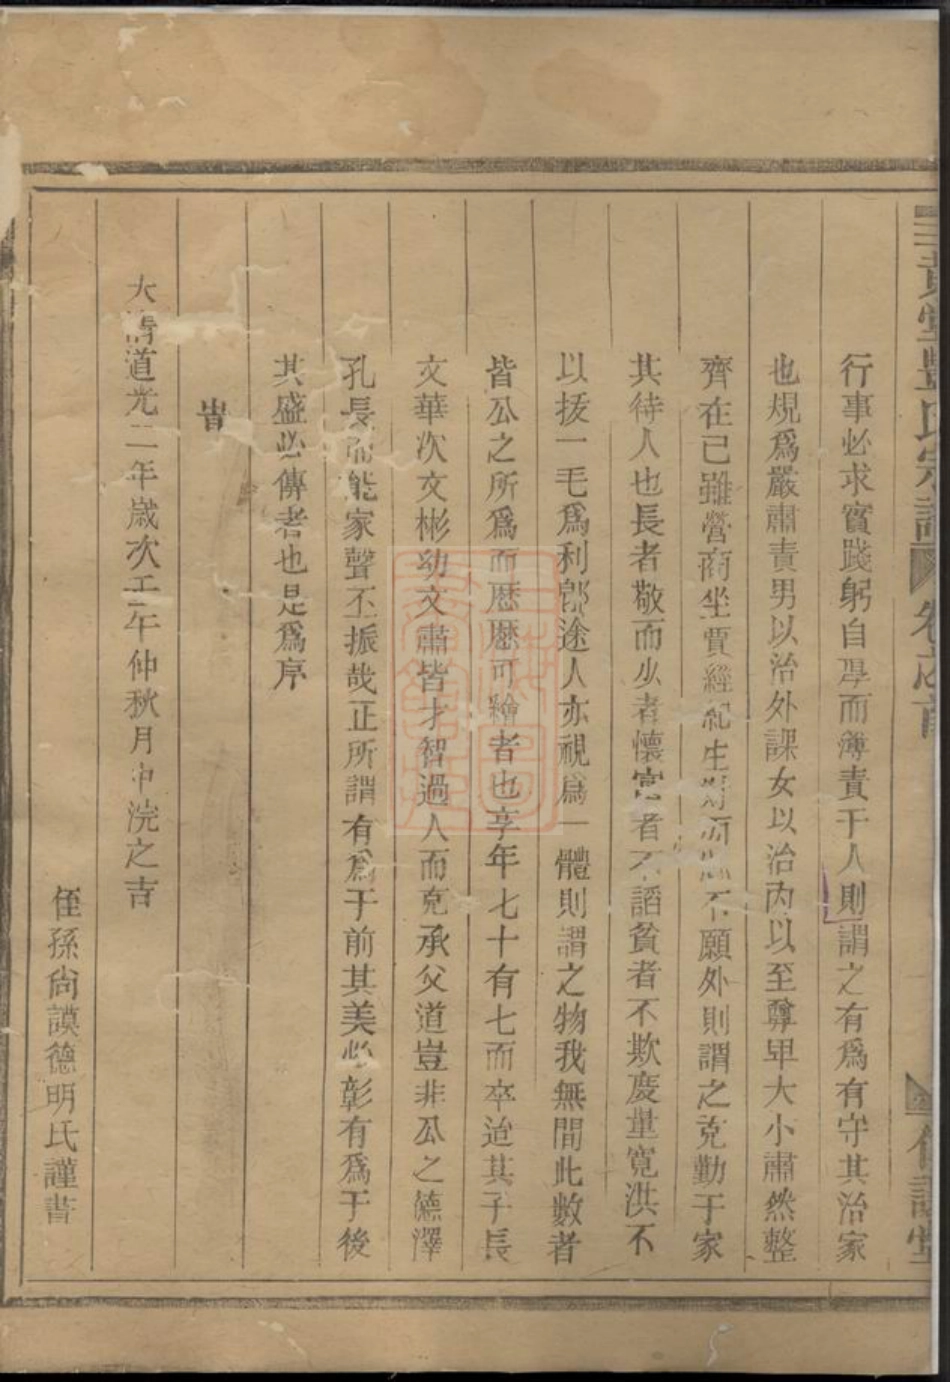 黃堂豐氏宗譜 卷之首
行事必求實踐躬自厚而薄責于人則謂之有爲有守其治家
也規爲嚴肅責男以治外課女以治内以至尊卑大小肅然整
齊在已雖營商坐賈經紀生財而不願外則謂之克勤于家
其待人也長者敬而少者懷富者不諂貧者不欺度量寛洪不
以拔一毛爲利卽途人亦視爲一體則謂之物我無間此數者
皆公之所爲而歷歷可繪者也享年七十有七而卒迨其子長
文華次文彬幼文肅皆才智過人而克承父道豈非公之德澤
孔長而能家聲丕振哉正所謂有爲于前其美必彰有爲于後
其盛必傳者也是爲序
旹
大清道光二年歲次壬午仲秋月中浣之吉
侄孫尙謨德明氏謹書